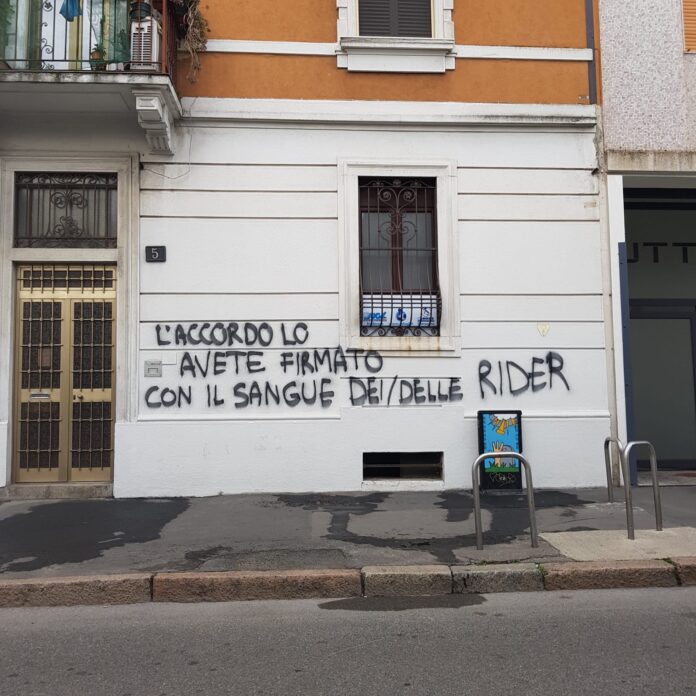 5
L'ACCORDO LO
AVETE FIRMATO
CON IL SANGUE DEI/DELLE RIDER
UTT